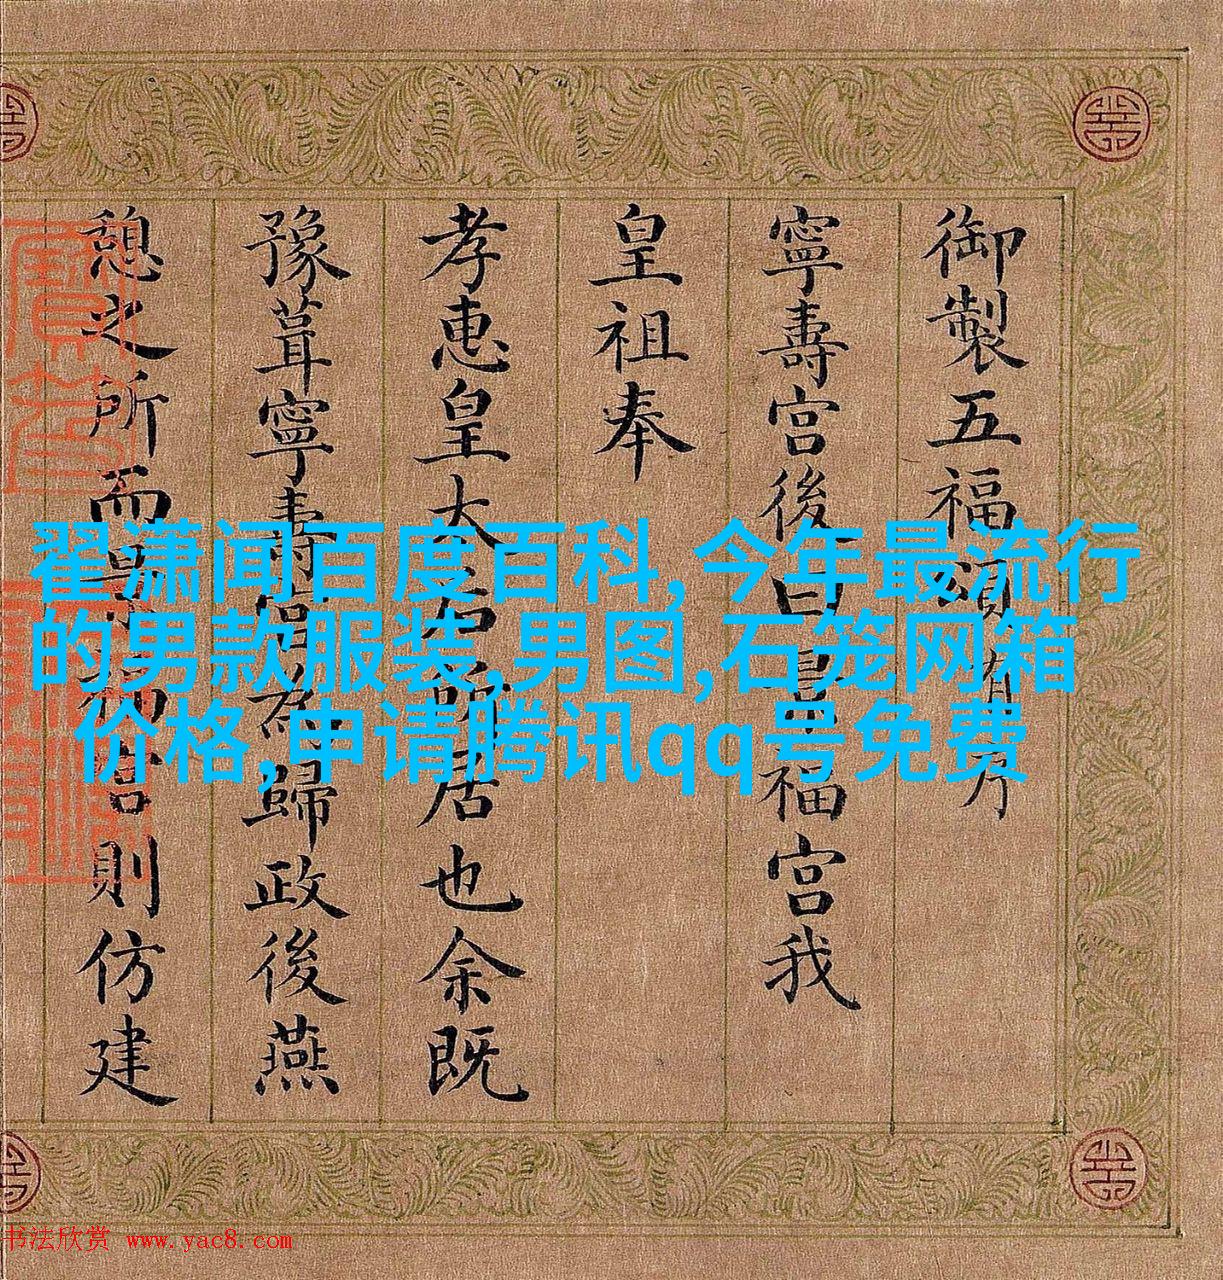 御製五福頌有
寧壽宮後曰景福宮我
皇祖奉
孝惠皇太后所居也余既
豫葺寧壽宮為歸政後燕
憩之所而景福宮則仿建
翟潇闻百度百科,今年最流行
的男款服装,男图,石笼网箱
价格,申请腾讯qq号免费
书法欣赏 www.yac8.com